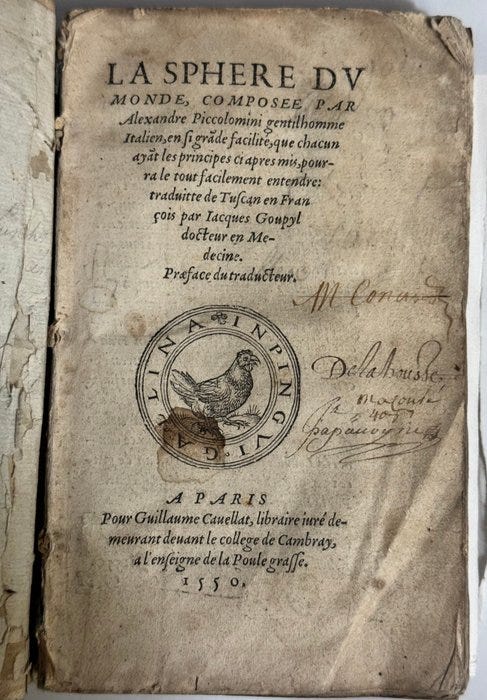 LA SPHERE DV
MONDE, COMPOSEE PAR
Alexandre Piccolomini gentilhomme
Italien, en si grãde facilité, que chacun
ayãt les principes ci apres mis, pour-
ra le tout facilement entendre:
traduitte de Tuscan en Fran
çois par Iacques Goupyl
docteur en Me-
decine.
Præface du traducteur.
M Conard
IN PINGVI GALLINA
Delahousse
A PARIS
Pour Guillaume Cauellat, libraire iuré de-
meurant deuant le college de Cambray,
a l'enseigne de la Poule grasse.
1550.